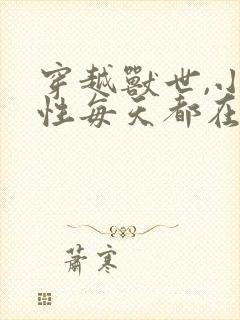 穿越兽世,小
性每天都在
萧寒